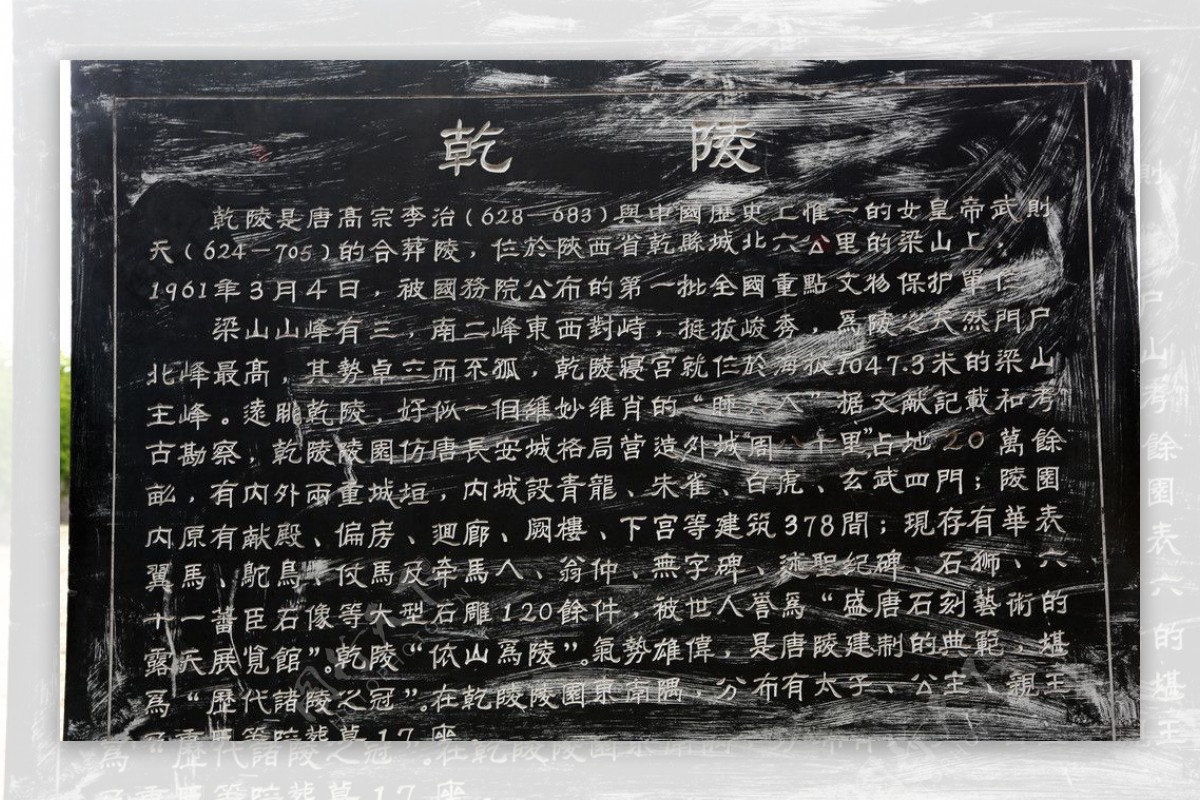 乾陵
乾陵是唐高宗李治(628—683)與中國歷史上惟一的女皇帝武則
天(624—705)的合葬陵，位於陝西省乾縣城北六公里的梁山上，
1961年3月4日，被國務院公布的第一批全國重點文物保护單位
梁山山峰有三，南二峰東西對峙，挺拔峻秀，爲陵之天然門户
北峰最高，其勢卓立而不孤，乾陵寢宫就位於海拔1047.3米的梁山
主峰。遠眺乾陵，好似一但維妙維肖的“睡美人”据文献記載和考
古勘察，乾陵陵園仿唐長安城格局营造外城“周八十里”占地20萬餘
畝，有内外兩重城垣，内城設青龍、朱雀、白虎、玄武四門；陵園
内原有献殿、偏房、廻廊、阙樓、下宫等建筑378間；現存有華表
翼馬、鴕鳥、仗馬及牽馬人、翁仲、無字碑、述聖纪碑、石狮、六
十一蕃臣石像等大型石雕120餘件，被世人誉爲“盛唐石刻藝術的
露天展览館”。乾陵“依山爲陵”。氣勢雄偉，是唐陵建制的典範，堪
爲“歷代諸陵之冠”。在乾陵陵園東南隅，分布有太子、公主、親王
等陪葬墓17座